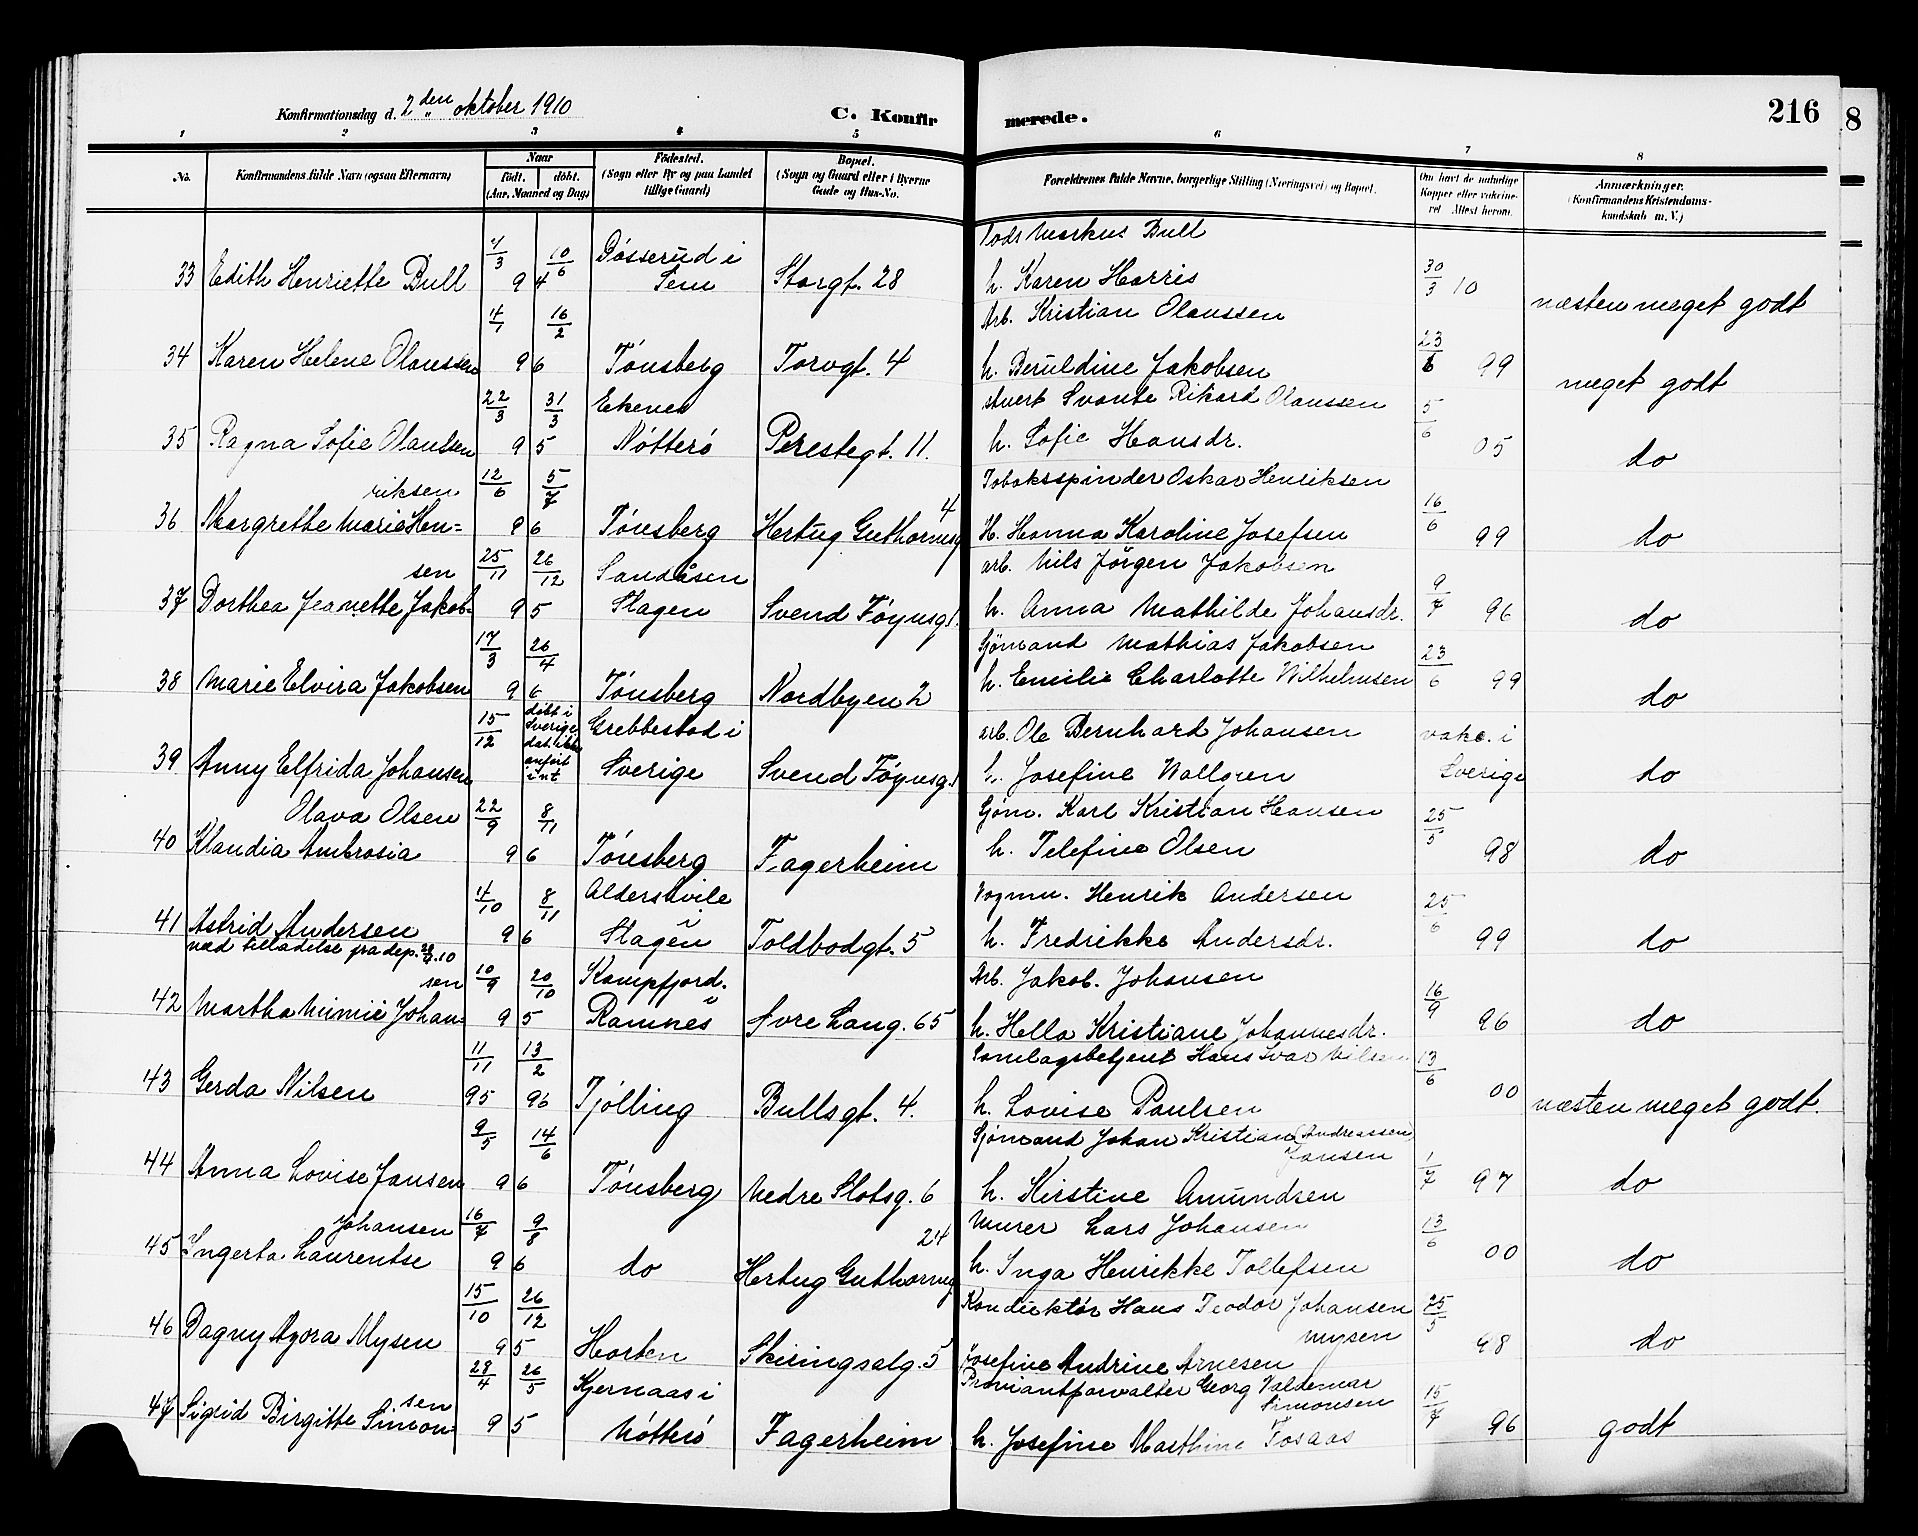 Konfirmationsdag d. 2den oktober 1910
C. Konfirmerede.
216
8
1 2 3 4 5 6 7 8
No. Konfirmandens fulde Navn (ogsaa Efternavn) Naar født. døbt. (Aar, Maaned og Dag) Fødested. (Sogn eller By og paa Landet tillige Gaard) Bopæl. (Sogn og Gaard eller i Byerne Gade og Hus-No. Forældrenes fulde Navne, borgerlige Stilling (Næringsvei) og Bopæl. Om havt de naturlige Kopper eller vakcineret Attest herom. Anmærkninger. (Konfirmandens Kristendomskundskab m. V.)
Markus Bull
33 Edith Henriette Bull 4/3 10/6 94 Bøsserud i Sem Storgt. 28 h. Karen Harris 30/3 10 næsten meget godt
Arb. Kristian Olaussen
34 Karen Helene Olaussen 4/1 16/2 96 Tønsberg Torvgt. 4 h. Beruldine Jakobsen 23/6 99 meget godt
stuert Svante Rikard Olaussen
35 Ragna Sofie Olaussen 22/3 31/3 95 Ekenes Nøtterø Perestegt. 11. h. Sofie Hansdr. 5/6 05 do
Tobaksspinder Oskar Henriksen
36 Margrethe Marie Henriksen 12/6 5/7 96 Tønsberg Hertug Guthormsg 4 H. Hanna Karoline Josefsen 16/6 99 do
arb. Nils Jørgen Jakobsen
37 Dorthea Jeanette Jakobsen 25/11 26/12 95 Sandåsen Slagen Svend Føynsg. h. Anna Mathilde Johansdr. 9/7 96 do
Sjømand Mathias Jakobsen
38 Marie Elvira Jakobsen 17/3 26/4 96 Tønsberg Nordbyen 2 h. Emilie Charlotte Vilhelmsen 23/6 99 do
arb. Ole Bernhard Johansen
39 Anny Elfrida Johansen 15/12 døbt i Sverige dat. ikke anført Grebbestad i Sverige Svend Føynsg. h. Josefine Wallgren vakc. i Sverige do
Sjøm. Karl Kristian Hansen
40 Klaudia Ambrosia Olava Olsen 22/9 8/11 96 Tønsberg Fagerheim h. Telefine Olsen 25/5 98 do
Vognm. Henrik Andersen
41 Astrid Andersen 4/10 8/11 96 Aldershvile i Slagen Toldbodgt. 5 h. Fredrikke Andersdr. 25/6 99 do
med tilladelse fra dep.
Arb. Jakob Johansen
42 Martha Mimie Johansen 10/9 20/10 95 Kampfjord. i Ramnes Øvre Lang. 65 h. Hella Kristiane Johannesdr. 16/9 96 do
Samlagsbetjent Hans Ivar Nilsen
43 Gerda Nilsen 11/11 95 13/2 96 Tjølling Bullsgt. 4. h. Lovise Paulsen 13/6 00 næsten meget godt.
Sjømand Johan Kristian (Andreassen) Jansen
44 Anna Lovise Jansen 9/5 14/6 96 Tønsberg Nedre Slotsg. 6 h. Kirstine Amundsen 1/7 97 do
Murer Lars Johansen
45 Ingerta Laurentse Johansen 16/7 9/8 96 do Hertug Guthormsg 24 h. Inga Henrikke Tollefsen 13/6 00 do
Konduktør Hans Teodor Johansen Mysen
46 Dagny Agora Mysen 15/10 26/12 95 Horten Skiringsalg. 5 Josefine Andrine Arnesen 25/5 98 do
Proviantforvalter Georg Valdemar Simonsen
47 Sigrid Birgitte Simonsen 28/4 26/5 95 Kjernaas i Nøtterø Fagerheim h. Josefine Marthine Fosaas 15/7 96 godt